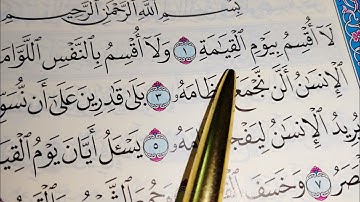 بِسْمِ ٱللَّهِ ٱلرَّحْمَٰنِ ٱلرَّحِيمِ
لَآ أُقْسِمُ بِيَوْمِ ٱلْقِيَٰمَةِ ١ وَلَآ أُقْسِمُ بِٱلنَّفْسِ ٱللَّوَّامَ
ٱلْإِنسَٰنُ أَلَّن نَّجْمَعَ عِظَامَهُۥ ٣ بَلَىٰ قَٰدِرِينَ عَلَىٰٓ أَن نُّسَوِّ
يُرِيدُ ٱلْإِنسَٰنُ لِيَفْجُرَ مَهُۥ ٥ يَسْـَٔلُ أَيَّانَ يَوْمُ ٱلْقِيَ
صَرُ ٧ وَخَسَفَ ٱلْقَ وَجُمِعَ ٱلشَّمْسُ وَٱلْقَمَرُ